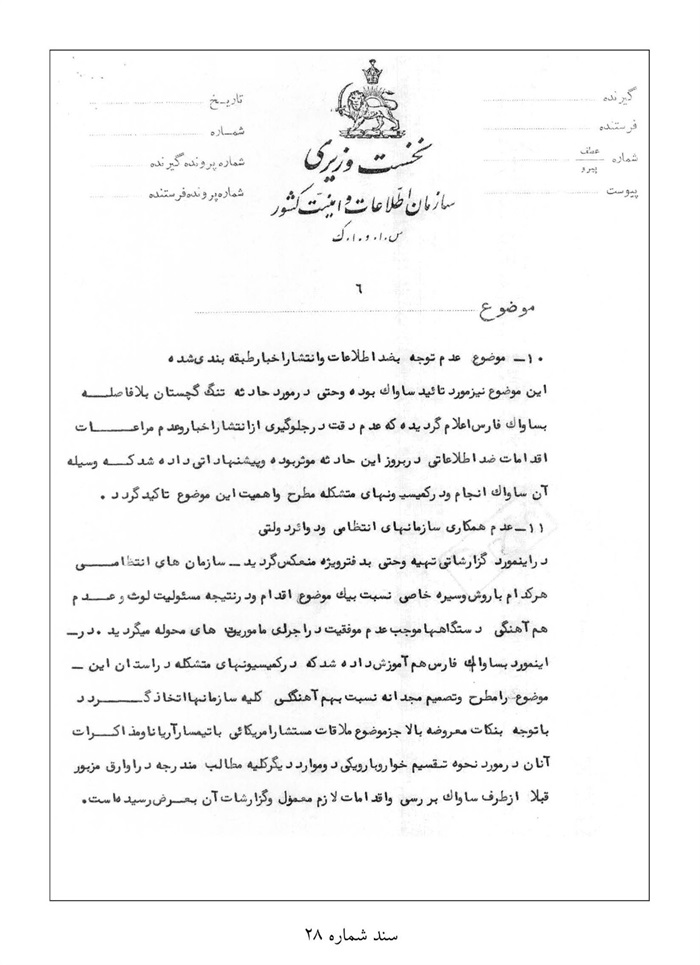 گیرنده
فرستنده
شماره عطف
پیرو
پیوست
تاریخ
شماره
شماره پرونده گیرنده
شماره پرونده فرستنده
نخست وزیری
سازمان اطلاعات و امنیت کشور
س.ا.و.ا.ک
۶
موضوع
۱۰ـ موضوع عدم توجه بضد اطلاعات وانتشاراخبارطبقه بندی شده
این موضوع نیزمورد تائید ساواک بوده وحتی درمورد حادثه تنگ گچستان بلافاصله
بساواک فارس اعلام گردیده که عدم دقت درجلوگیری ازانتشاراخباروعدم مراعات
اقدامات ضد اطلاعاتی دربروز این حادثه موثربوده وپیشنهاداتی داده شد که وسیله
آن ساواک انجام ودرکمیسیونهای متشکله مطرح واهمیت این موضوع تاکید گردد .
۱۱ـ عدم همکاری سازمانهای انتظامی ودوائردولتی
دراینمورد گزارشاتی تهیه وحتی بدفترویژه منعکس گردید ـ سازمان های انتظامی
هرکدام باروش وسیره خاصی نسبت بیک موضوع اقدام ودرنتیجه مسئولیت لوث وعدم
هم آهنگی دستگاهها موجب عدم موفقیت دراجرای ماموریت های محوله میگردید . درـ
اینمورد بساواک فارس هم آموزش داده شد که درکمیسیونهای متشکله دراستان این ـ
موضوع رامطرح وتصمیم مجدانه نسبت بهم آهنگی کلیه سازمانها اتخاذ گردد
باتوجه بنکات معروضه بالا جزموضوع ملاقات مستشارامریکائی باتیمسارآریانا ومذاکرات
آنان درمورد نحوه تقسیم خواروبارویکی دوموارد دیگرکلیه مطالب مندرجه دراوراق مزبور
قبلا ازطرف ساواک بررسی واقدامات لازم معمول وگزارشات آن بعرض رسیده است.
سند شماره ۲۸